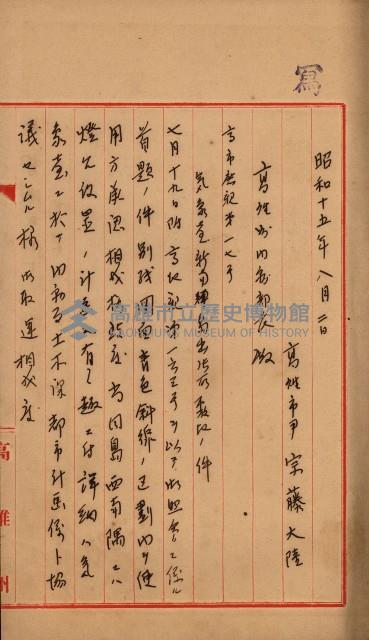 寫
昭和十五年八月二日
高雄市尹 宗藤大陸
高雄州内務部長殿
高市庶記第一七号
気象台新 出張所敷地ノ件
七月十九日附高地 第一六三号ヲ以テ御照会ニ係ル
首題ノ件別紙図面青色斜線ノ区劃内ヲ使
用方承認相成度 尚同島西南隅ニハ
燈 設置ノ計 有之趣ニ付詳細ハ気
象台ニ於テ内 土木課都市計画係ト協
議セシムル様御取運相成度
高雄州
高雄市立歷史博物館
KAOHSIUNG MUSEUM OF HISTORY